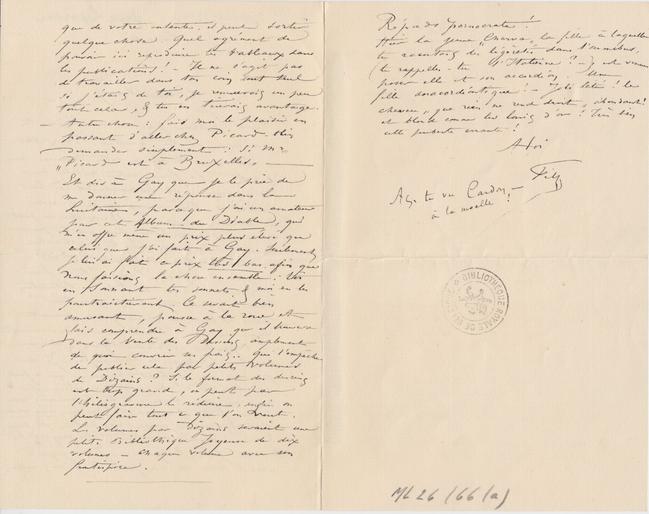 que de votre entente, il peut sortir
quelque chose. Quel agrément de
pouvoir ici reproduire tes tableaux dans
les publications! – Il ne s'agit pas
de travailler dans ton coin tout seul
si j'étais de toi, je remuerais un peu
tout cela, & tu en tirerais avantage.
– Autre chose: fais moi le plaisir en
passant d'aller chez Picard &
demandes simplement: Si Mr
"Picard est à Bruxelles. –
Et dis à Gay que je le prie de
me donner une réponse dans la
huitaine, parce que j'ai un amateur
par cet Album du Diable, qui
m'en offre même un prix plus élevé que
celui que j'ai fait à Gay. Seulement
je lui ai fait ce prix très bas afin que
nous fassions la chose ensemble: toi
en sonnant tes sonnets & moi en les
pourtraicturant. Ce serait bien
amusant, pousse à la roue et
fais comprendre à Gay que il trouvera
dans la vente des Dessins amplement
de quoi couvrir ses frais.. que l'empêche
de publier cela par petits volumes
de Dizains? Si le format des dessins
est trop grand, on peut par
l'héliogravure le réduire, enfin on
peut faire tout ce que l'on veut.
Les volumes par Dizains seraient une
petite Bibliothèque Joyeuse de dix
volumes – chaque volume avec son
frontispice.
Réponds pornocrate!
pour la jeune la fille à laquelle
tu racontais de légèreté dans l'omnibus,
(te rappelles-tu – Je vis venir
pour elle et son accordéon. Une
fille – Joli l'été! les
cheveux, que rien ne rend droit,
et blonde comme les d'or! Très bien
cette errante!
A toi
Fély
As-tu vu Cardon, –
à la moelle!
BIBLIOTHÈQUE ROYALE DE BELGIQUE
ML 26 (66 (a)